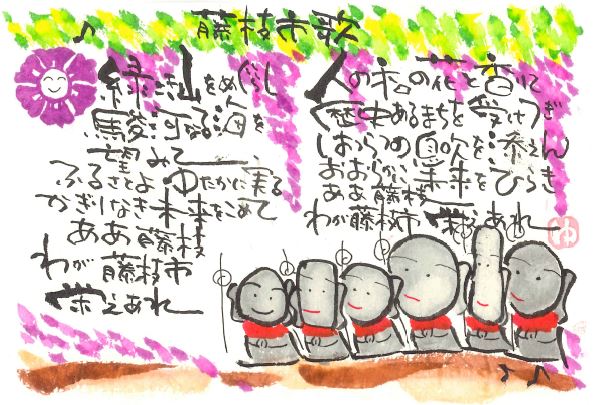 藤枝市歌
緑なす山をめぐらし
駿河なる海を
望みて
ふるさとよ ゆたかに実る
かぎりなき未来をこめて
ああ藤枝
わが藤枝市
栄えあれ
人の和の花と香に
歴史あるまちを受けつぎ
はつらつの息吹を添えん
おおらかに未来をひらき
ああ藤枝
わが藤枝市 栄えあれ
ゆ